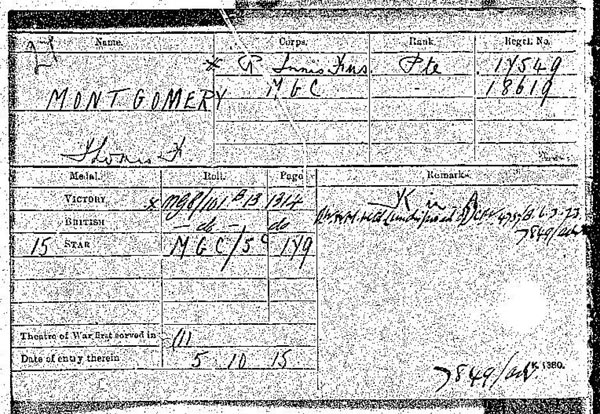 Name. Corps. Rank. Regtl. No.
* R Innis Fus. Pte 17549
MONTGOMERY MGC - 18619
Thomas
Medal. Roll. Page Remarks.
VICTORY * MGB/101 B13 1314 K in A
BRITISH - do - do
15 STAR MGC/5C 179 7849/adt
Theatre of War first served in (1)
Date of entry therein 5 10 15
7849/adt K. 1380.